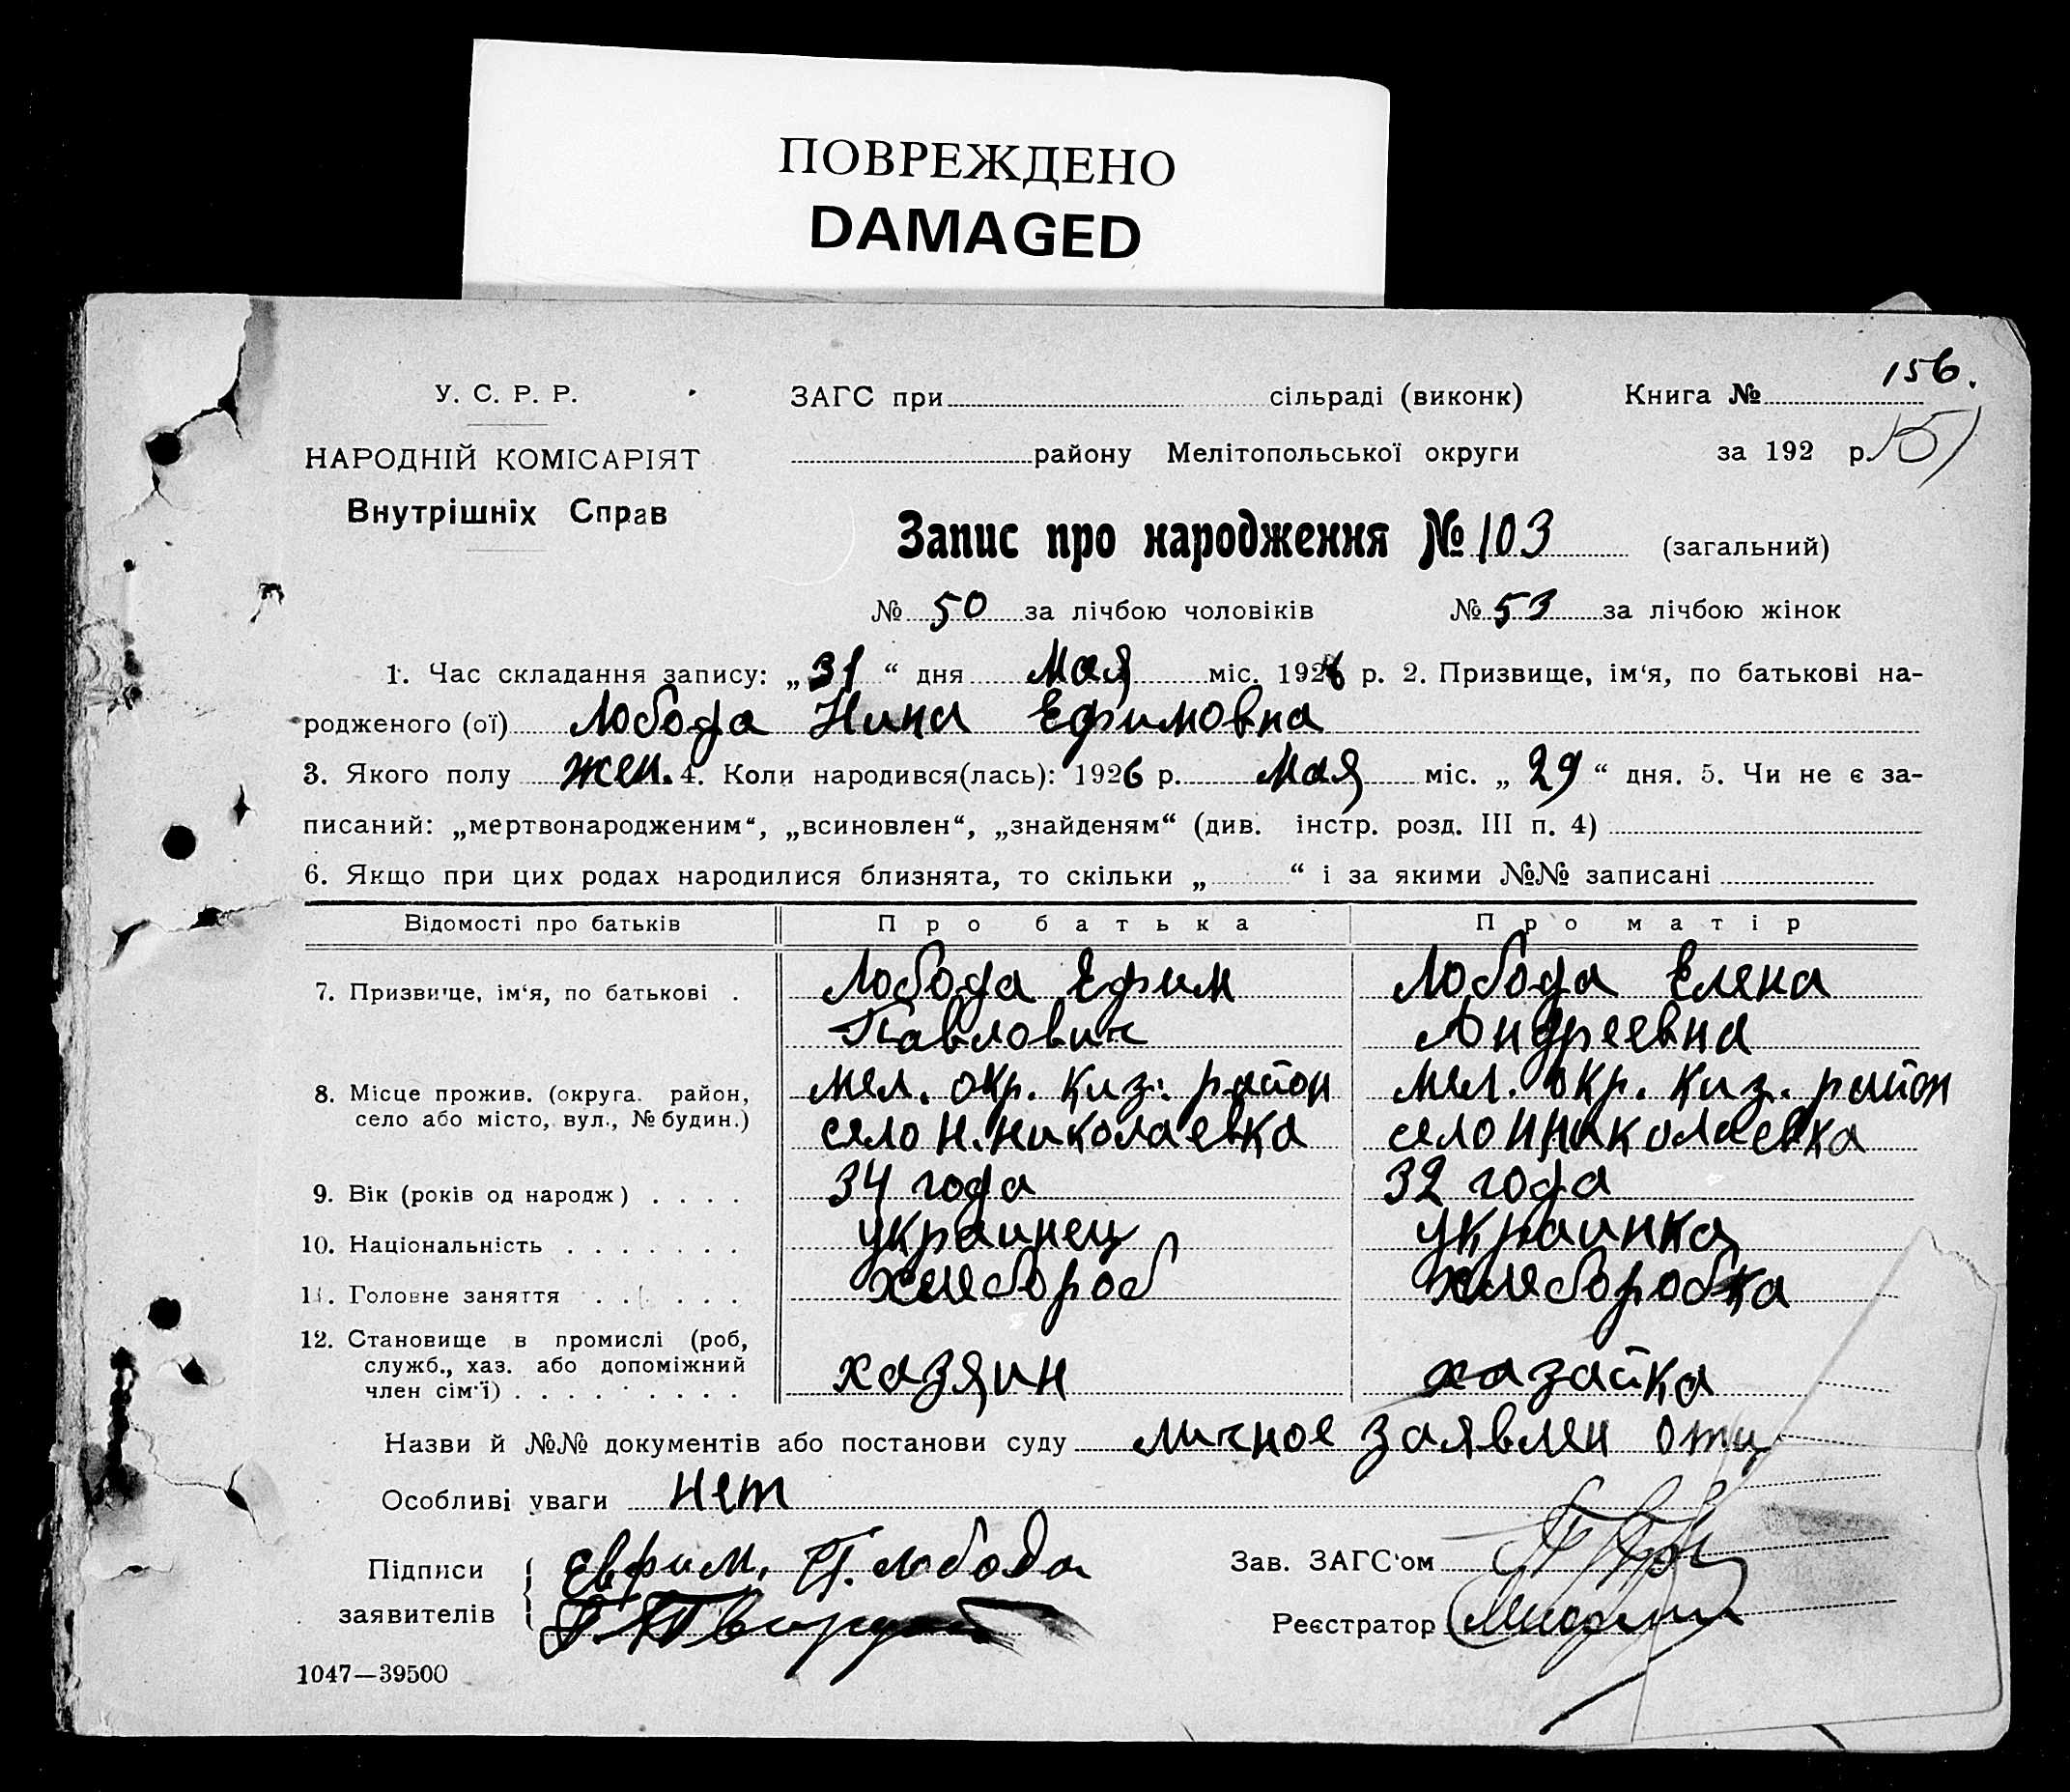 ПОВРЕЖДЕНО
DAMAGED
156.
У. С. Р. Р.
НАРОДНІЙ КОМІСАРІЯТ
Внутрішніх Справ
ЗАГС при сільраді (виконк) Книга №
району Мелітопольської округи за 192 р. 151
Запис про народження № 103 (загальний)
№ 50 за лічбою чоловіків № 53 за лічбою жінок
1. Час складання запису: „31“ дня Мая міс. 1926 р. 2. Призвище, ім‘я, по батькові на-
родженого (ої) Лобода Нина Ефимовна
3. Якого полу жен. 4. Коли народився(лась): 1926 р. Мая міс. „29“ дня. 5. Чи не є за-
писаний: „мертвонародженим“, „всиновлен“, „знайденям“ (див. інстр. розд. III п. 4)
6. Якщо при цих родах народилися близнята, то скільки „ “ і за якими №№ записані
Відомості про батьків Про батька Про матір
7. Призвище, ім‘я, по батькові . Лобода Ефим Лобода Елена
Павлович Андреевна
8. Місце прожив. (округа. район, мел. окр. киз. район мел. окр. киз. район
село або місто, вул., № будин.) село Н. Николаевка село Н Николаевка
9. Вік (років од народж) . . . . 34 года 32 года
10. Національність . . . . . . . украинец украинка
11. Головне заняття . . . . . . хлебороб хлеборобка
12. Становище в промислі (роб,
служб., хаз. або допоміжний хазяин хазайка
член сім‘ї) . . . . . . . . .
Назви й №№ документів або постанови суду личное заявлен отц
Особливі уваги нет
Підписи Евфим. П. лобода Зав. ЗАГС‘ом
заявителів Реєстратор
1047—39500